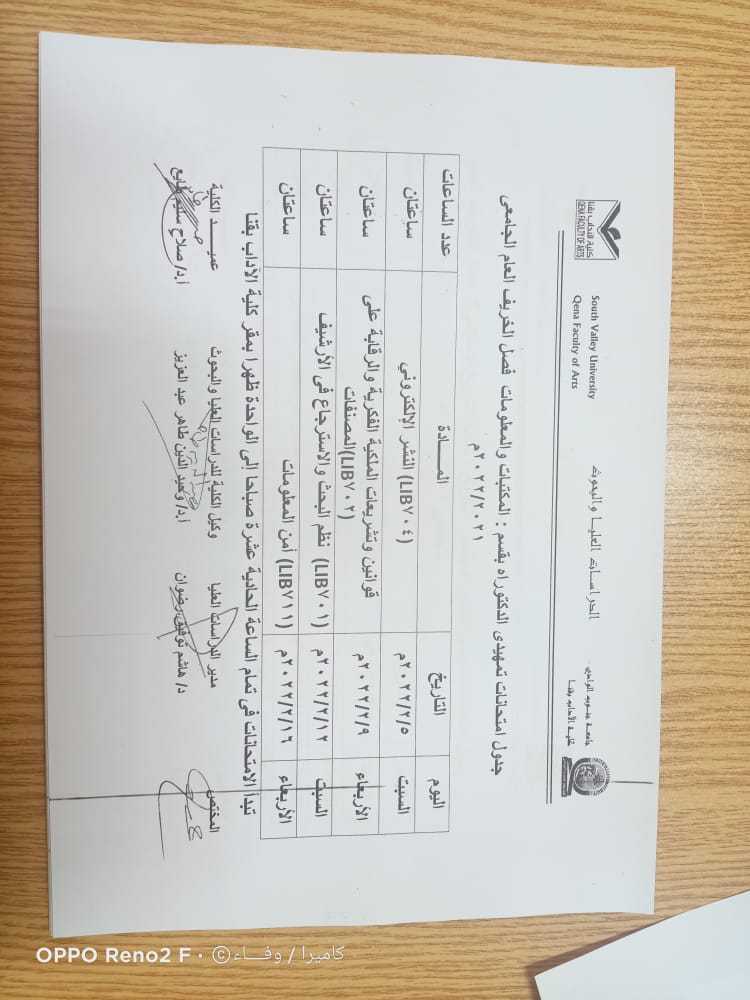 جامعة جنوب الوادي
كلية الآداب بقنا
الدراسات العليا والبحوث
South Valley University
Qena Faculty of Arts
كلية الآداب بقنا
QENA FACULTY OF ARTS
جدول امتحانات تمهيدى الدكتوراه بقسم : المكتبات والمعلومات فصل الخريف العام الجامعى
٢٠٢٢/٢٠٢١م
اليوم التاريخ المـــادة عدد الساعات
السبت ٢٠٢٢/٢/٥م (LIB٧٠٤) النشر الإلكتروني ساعتان
الأربعاء ٢٠٢٢/٢/٩م قوانين وتشريعات الملكية الفكرية والرقابة على
المصنفات(LIB٧٠٢) ساعتان
السبت ٢٠٢٢/٢/١٢م (LIB٧٠١) نظم البحث والاسترجاع فى الأرشيف ساعتان
الأربعاء ٢٠٢٢/٢/١٦م (LIB٧١١) أمن المعلومات ساعتان
تبدأ الامتحانات فى تمام الساعة الحادية عشرة صباحا إلى الواحدة ظهرا بمقر كلية الآداب بقنا
المختص مدير الدراسات العليا وكيل الكلية للدراسات العليا والبحوث عميــد الكلية
د/ هاشم توفيق رضوان أ.د/ وحيد الدين طاهر عبد العزيز أ.د/ صلاح سليم طايع
OPPO Reno2 F · ©كاميرا / وفــاء